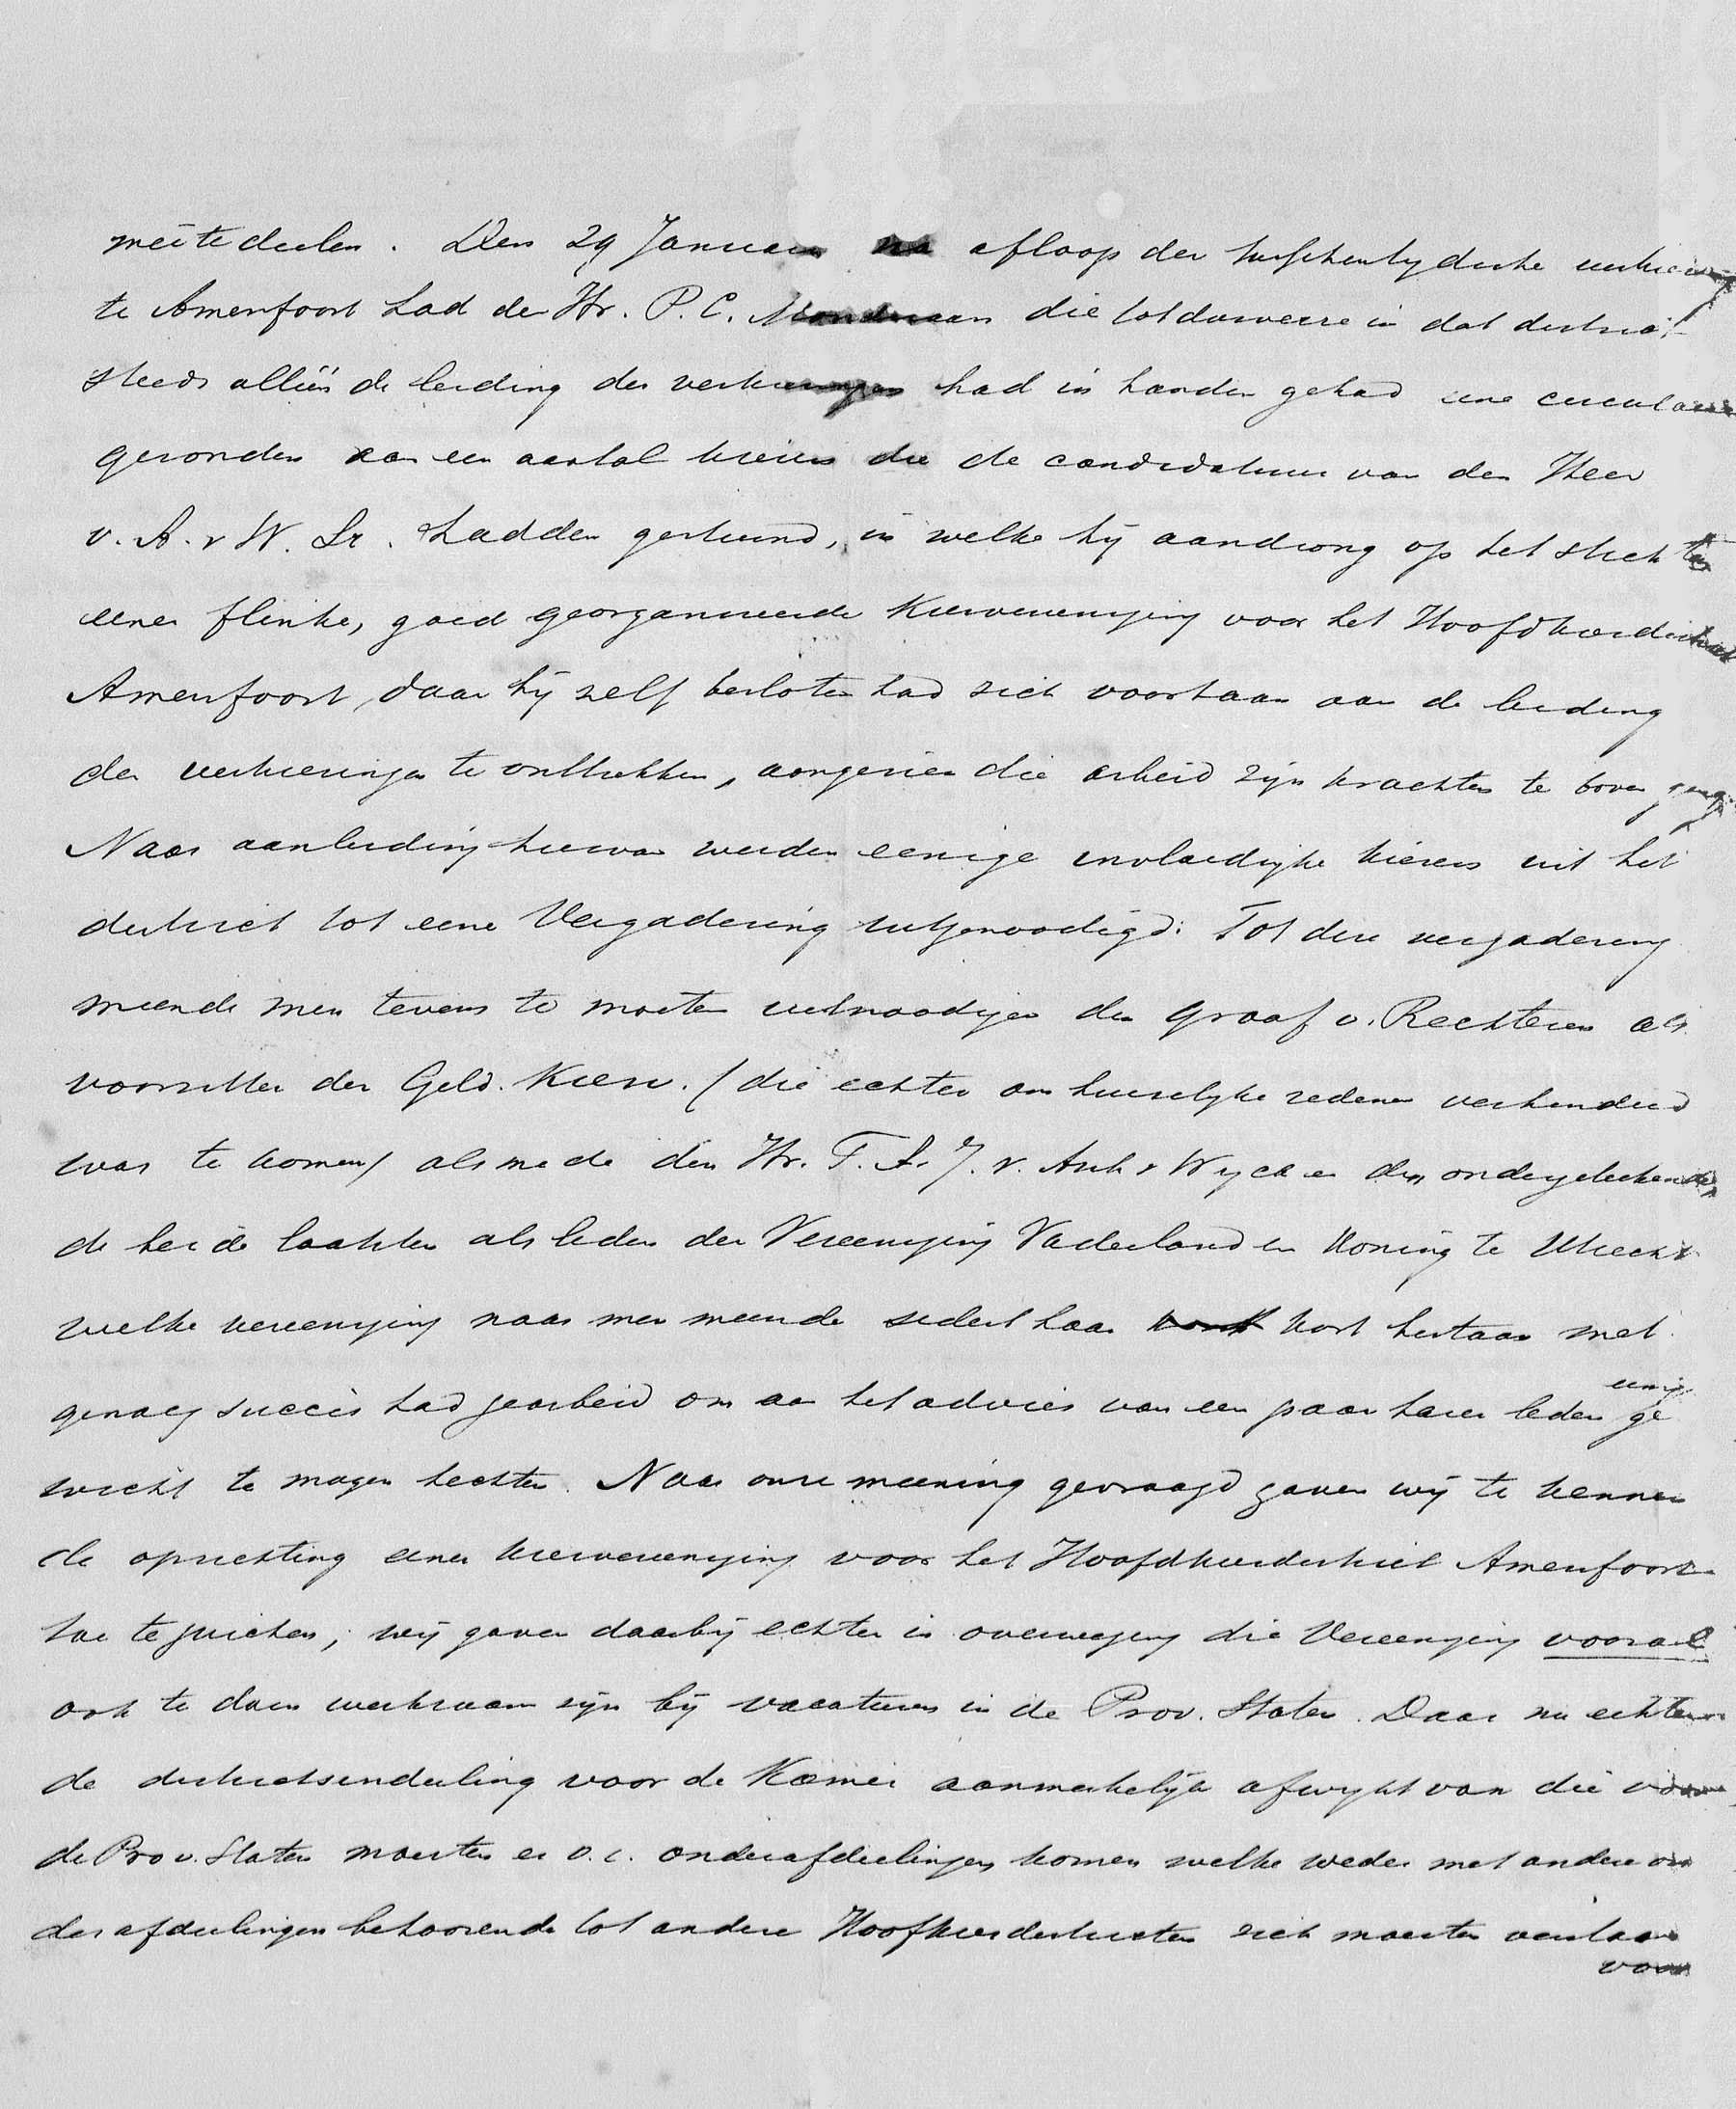 meê te deelen. Den 29 Januari na afloop der tusschentijdsche verkiezing
te Amersfoort had de Hr. P. C. die tot dusverre in dat district
steeds alléén de leiding der verkiezingen had in handen gehad eene circulaire
gezonden aan een aantal kiezers die de candidatuur van den Heer
v. A. v W. Sr. hadden gesteund, in welke hij aandrong op het stichten
eener flinke, goed georganiseerde Kiesvereeniging voor het Hoofdkiesdistrict
Amersfoort, daar hij zelf besloten had zich voortaan aan de leiding
der verkiezingen te onttrekken, aangezien die arbeid zijn krachten te boven ging.
Naar aanleiding hiervan werden eenige invloedrijke kiezers uit het
district tot eene Vergadering uitgenoodigd. Tot deze vergadering
meende men tevens te moeten uitnoodigen den Graaf v. Rechteren als
voorzitter der Geld. Kiesv. (die echter om huiselijke redenen verhinderd
was te komen) alsmede den Hr. T. A. J. v. Asch v Wyck en den ondergeteekende,
de beide laatsten als leden der Vereeniging Vaderland en Koning te Utrecht
welke vereeniging naar men meende sedert haar kort bestaan met
genoeg succès had gearbeid om aan het advies van een paar harer leden eenig ge
wicht te mogen hechten. Naar onze meening gevraagd gaven wij te kennen
de oprichting eener kiesvereeniging voor het Hoofdkiesdistrict Amersfoort
toe te juichen, wij gaven daarbij echter in overweging die Vereeniging vooral
ook te doen werkzaam zijn bij vacatures in de Prov. Staten. Daar nu echter
de districtsindeeling voor de Kamer aanmerkelijk afwijkt van die voor
de Prov. Staten moesten er o.i. onderafdeelingen komen welke weder met andere on
derafdeelingen behoorende tot andere Hoofkiesdistricten zich moesten verstaan
voor